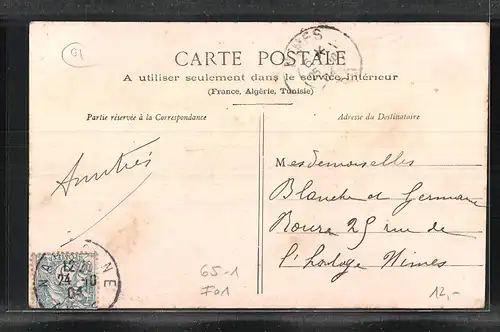 91
NIMES
CARTE POSTALE
A utiliser seulement dans le service intérieur
(France, Algérie, Tunisie)
Partie réservée à la Correspondance
Adresse du Destinataire
Amitiés
Mesdemoiselles
Blanche et Germaine
Roure 25 rue de
l'horloge Nimes
24
65-1
F01
12,-